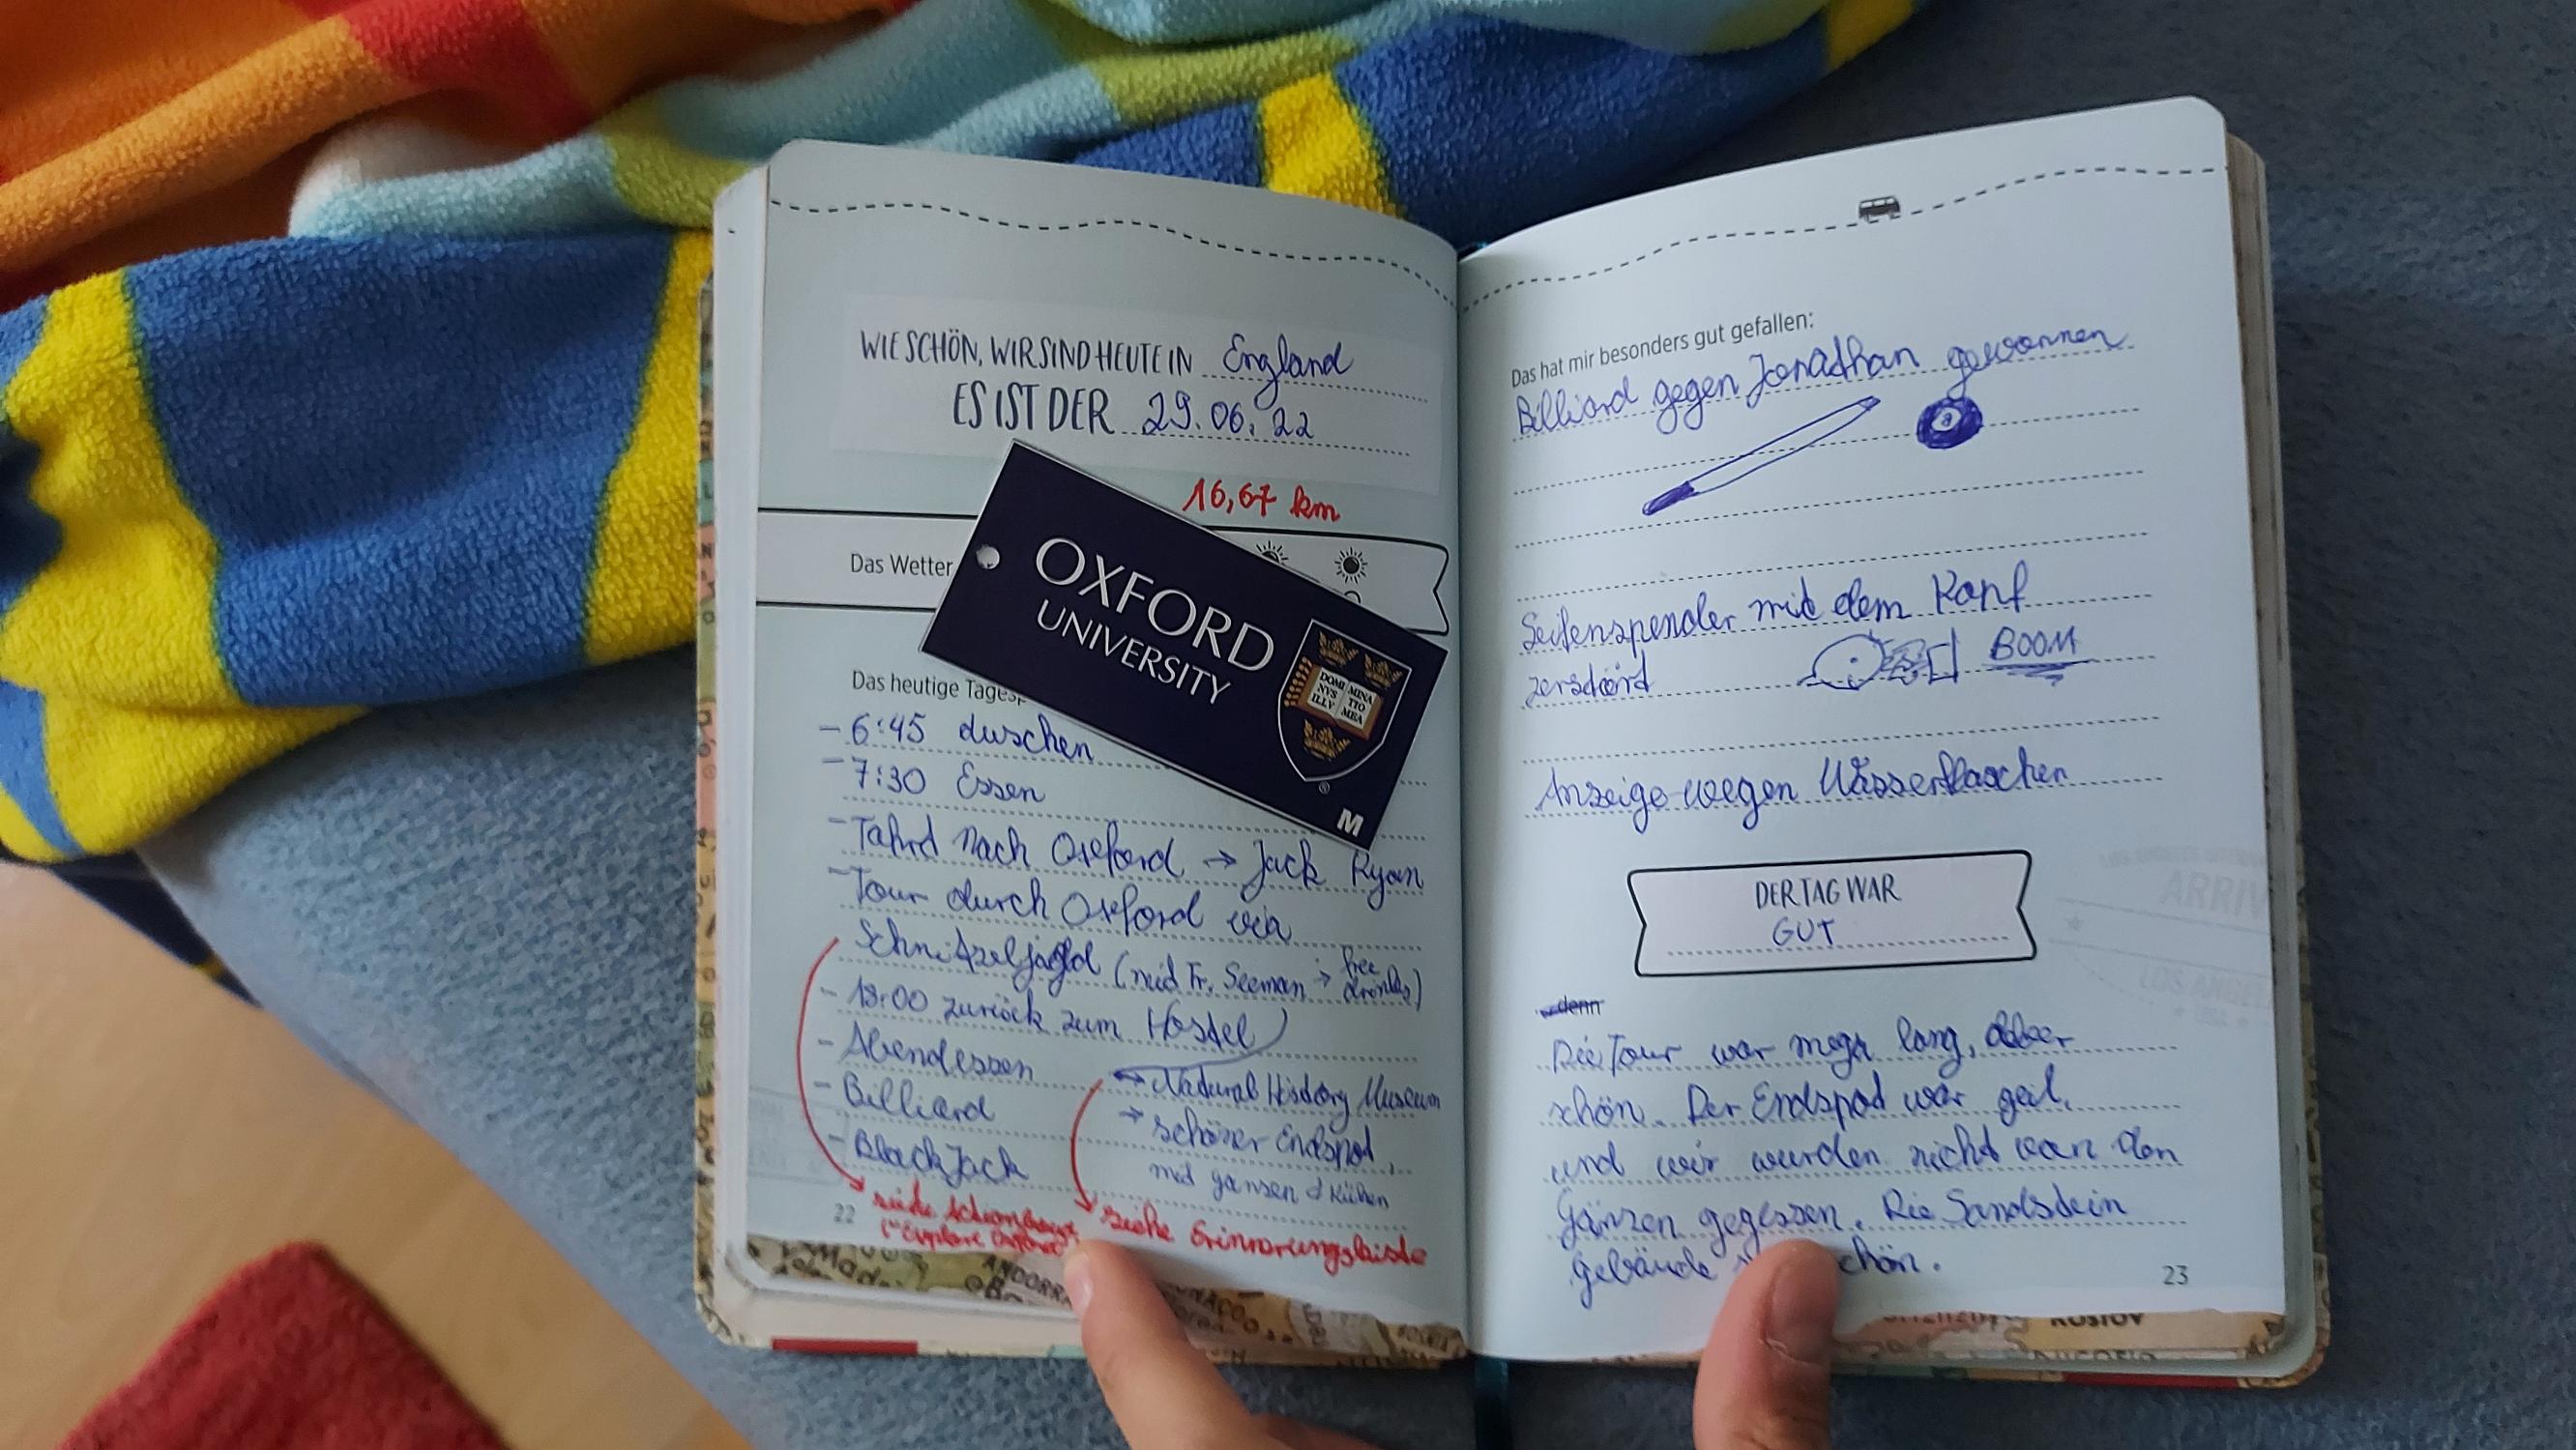 WIE SCHÖN, WIR SIND HEUTE IN England
ES IST DER 29.06.22
16,67 km
Das Wetter
OXFORD
UNIVERSITY
DOMI MINA
NVS TIO
ILLV MEA
®
M
Das heutige Tagesp
- 6:45 duschen
- 7:30 Essen
- Fahrd nach Oxford → Jack Ryan
- Tour durch Oxford via
Schnitzeljagd (mid Fr. Seeman → free
drinks)
- 18:00 zurück zum Hostel
- Abendessen
- Billiard
- BlackJack
→ Natural History Museum
→ schöner Endspot,
mid gansen & Kühen
siehe
siehe Erinnerungskiste
22
Das hat mir besonders gut gefallen:
Billiard gegen Jonathan gewonnen
8
Seifenspender mit dem Kopf
zerstört
BOOM
Anzeige wegen Wasserflaschen
DER TAG WAR
GUT
denn
Die Tour war mega lang, aber
schön. Der Endspot war geil,
und wir wurden nicht von den
Gänzen gegessen. Die Sandstein
gebäude chön.
23
ARRIV
LOS ANGE
ANDORRA
ROSTOV